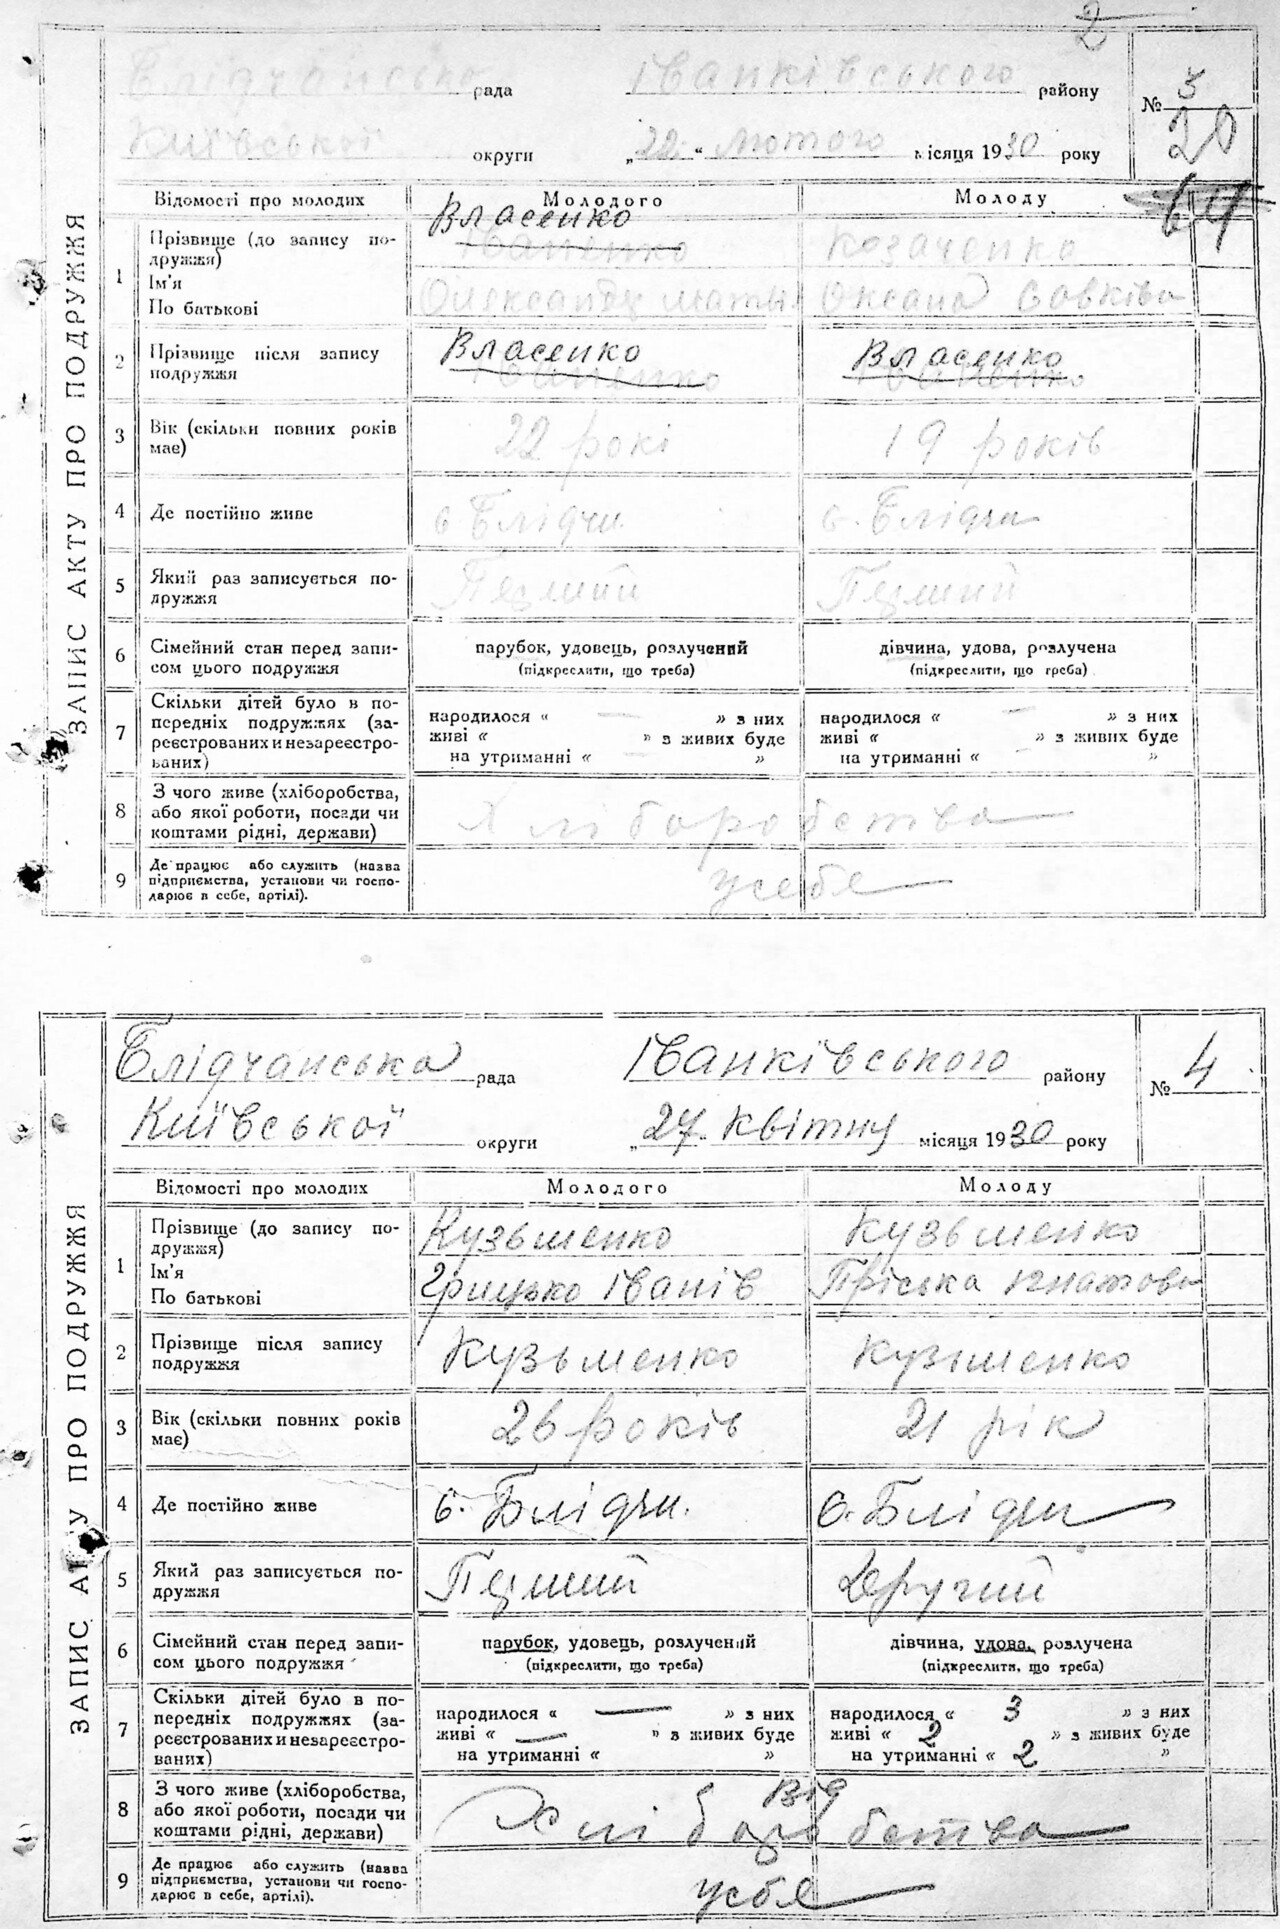 2
Блідчанська рада Іванківського району № 3
Київської округи „22“ лютого місяця 1930 року 20
64
ЗАПИС АКТУ ПРО ПОДРУЖЖЯ
Відомості про молодих Молодого Молоду
Власенко
1 Прізвище (до запису по-дружжя) Іваненко Козаченко
Ім'я
По батькові Олександр Оксана Савківа
Власенко Власенко
2 Прізвище після запису подружжя Іваненко Іваненко
3 Вік (скільки повних років має) 22 рокі 19 років
4 Де постійно живе с Блідчи с. Блідчи
5 Який раз записується по-дружжя Перший Перший
6 Сімейний стан перед запи-сом цього подружжя парубок, удовець, розлучений (підкреслити, що треба) дівчина, удова, розлучена (підкреслити, що треба)
7 Скільки дітей було в по-передніх подружжях (за-реєстрованих и незареєстро-ваних) народилося « — » з них живі « » з живих буде на утриманні « » народилося « — » з них живі « » з живих буде на утриманні « »
8 З чого живе (хліборобства, або якої роботи, посади чи коштами рідні, держави) Хліборобства
9 Де працює або служить (назва підприємства, установи чи госпо-дарює в себе, артілі). усебе
Блідчанська рада Іванківського району № 4
Київської округи „27 Квітня місяця 1930 року
ЗАПИС АКТУ ПРО ПОДРУЖЖЯ
Відомості про молодих Молодого Молоду
1 Прізвище (до запису по-дружжя) Кузьменко Кузьменко
Ім'я
По батькові Грицько Іванів Пріська Ігнатова
2 Прізвище після запису подружжя Кузьменко Кузьменко
3 Вік (скільки повних років має) 26 років 21 рік
4 Де постійно живе с. Блідчи. с. Блідчи
5 Який раз записується по-дружжя Перший Другий
6 Сімейний стан перед запи-сом цього подружжя парубок, удовець, розлучений (підкреслити, що треба) дівчина, удова, розлучена (підкреслити, що треба)
7 Скільки дітей було в по-передніх подружжях (за-реєстрованих и незареєстро-ваних) народилося « — » з них живі « — » з живих буде на утриманні « » народилося « 3 » з них живі « 2 » з живих буде на утриманні « 2 »
8 З чого живе (хліборобства, або якої роботи, посади чи коштами рідні, держави) Від Хліборобства
9 Де працює або служить (назва підприємства, установи чи госпо-дарює в себе, артілі). усбе